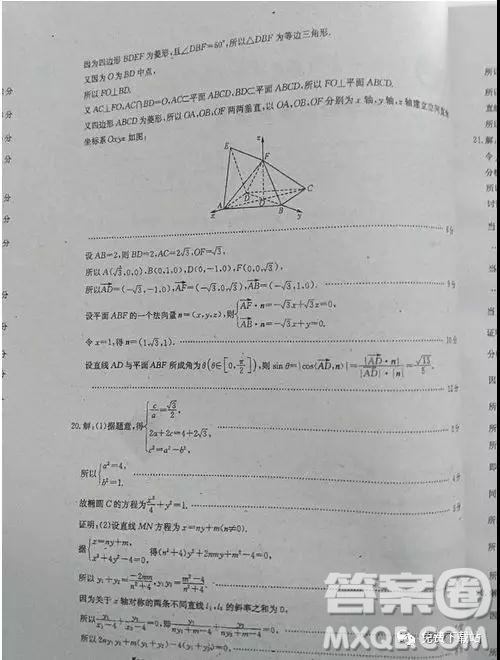 因为四边形 BDEF 为菱形,且∠DBF=60°,所以△DBF 为等边三角形.
又因为 O 为 BD 中点,
所以 FO⊥BD.
又 AC⊥FO,AC∩BD=O,AC⊂平面 ABCD,BD⊂平面 ABCD,所以 FO⊥平面 ABCD.
又四边形 ABCD 为菱形,所以 OA,OB,OF 两两垂直,以 OA,OB,OF 分别为 x 轴,y 轴,z 轴建立空间直角
坐标系 Oxyz 如图:
z
E
F
C
D
O
A
B
x
y
设 AB=2,则 BD=2,AC=2√3,OF=√3,
所以 A(√3,0,0),B(0,1,0),D(0,-1,0),F(0,0,√3),
所以AD=(-√3,-1,0),AF=(-√3,0,√3),AB=(-√3,1,0).
设平面 ABF 的一个法向量 n=(x,y,z),则{AF·n=-√3x+√3z=0,
AB·n=-√3x+y=0.
令 x=1,得 n=(1,√3,1). 10分
设直线 AD 与平面 ABF 所成角为 θ(θ∈[0,π/2]),则 sin θ=|cos⟨AD,n⟩|=|AD·n|/(|AD|·|n|)=√15/5.
12分
20. 解:(1)据题意,得{c/a=√3/2,
2a+2c=4+2√3, 2分
c²=a²-b²,
所以{a²=4,
b²=1. 4分
故椭圆 C 的方程为x²/4+y²=1.
证明:(2)设直线 MN 方程为 x=ny+m(n≠0).
据{x=ny+m,
x²+4y²-4=0, 得(n²+4)y²+2mny+m²-4=0,
所以 y₁+y₂=-2mn/(n²+4),y₁y₂=(m²-4)/(n²+4).
因为关于 x 轴对称的两条不同直线 l₁,l₂ 的斜率之和为 0,
所以y₁/(x₁-4)+y₂/(x₂-4)=0,即y₁/(ny₁+m-4)+y₂/(ny₂+m-4)=0,
所以 2ny₁y₂+m(y₁+y₂)-4(y₁+y₂)=0,
21. 解
答案卷
MXQE.COM
免费下载站